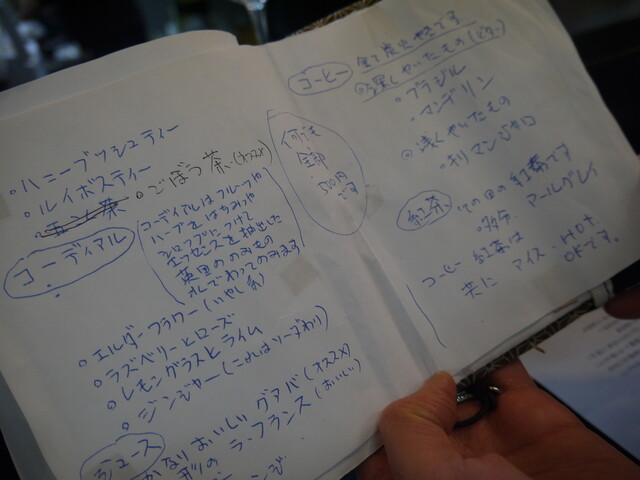 ・ハニーブッシュティー
・ルイボスティー
・ごぼう茶 (オススメ)
コーディアル
コーディアルはフルーツや
ハーブをはちみつや
シロップにつけて
エッセンスを抽出した
英国ののみもの
水でわってのみます
・エルダーフラワー (いやし系)
・ラズベリーとローズ
・レモングラスとライム
・ジンジャー (これはリーズわり)
ジュース
かなりおいしい グアバ (オススメ)
ラ・フランス (おいしい)
何でも
全部
500円
です
コーヒー 全て炭火焼です
◎深くやいたもの (ビター)
・ブラジル
・マンデリン
◎浅くやいたもの
・キリマンジャロ
紅茶 その日の紅茶です
・多分、アールグレイ
コーヒー 紅茶は
共に アイス・HOT
OKです。